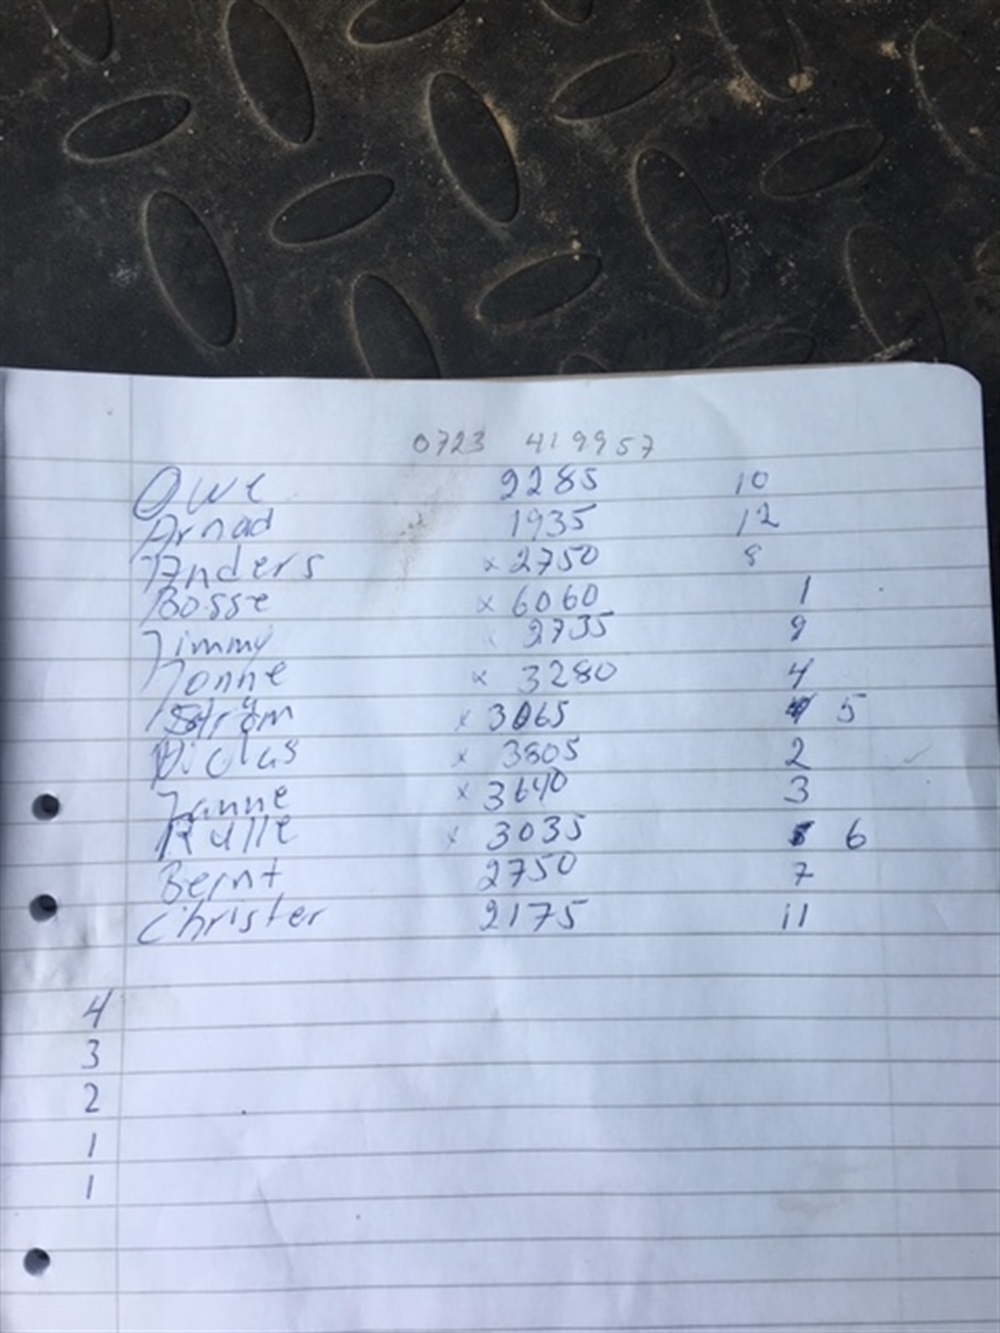 0723 419957
Owe 2285 10
Arnad 1935 12
Anders × 2750 8
Bosse × 6060 1
Jimmy 2735 9
Jonne × 3280 4
Ström × 3065 5
Niclas × 3805 2
Janne × 3640 3
Kulle × 3035 6
Bernt 2750 7
Christer 2175 11
4
3
2
1
1